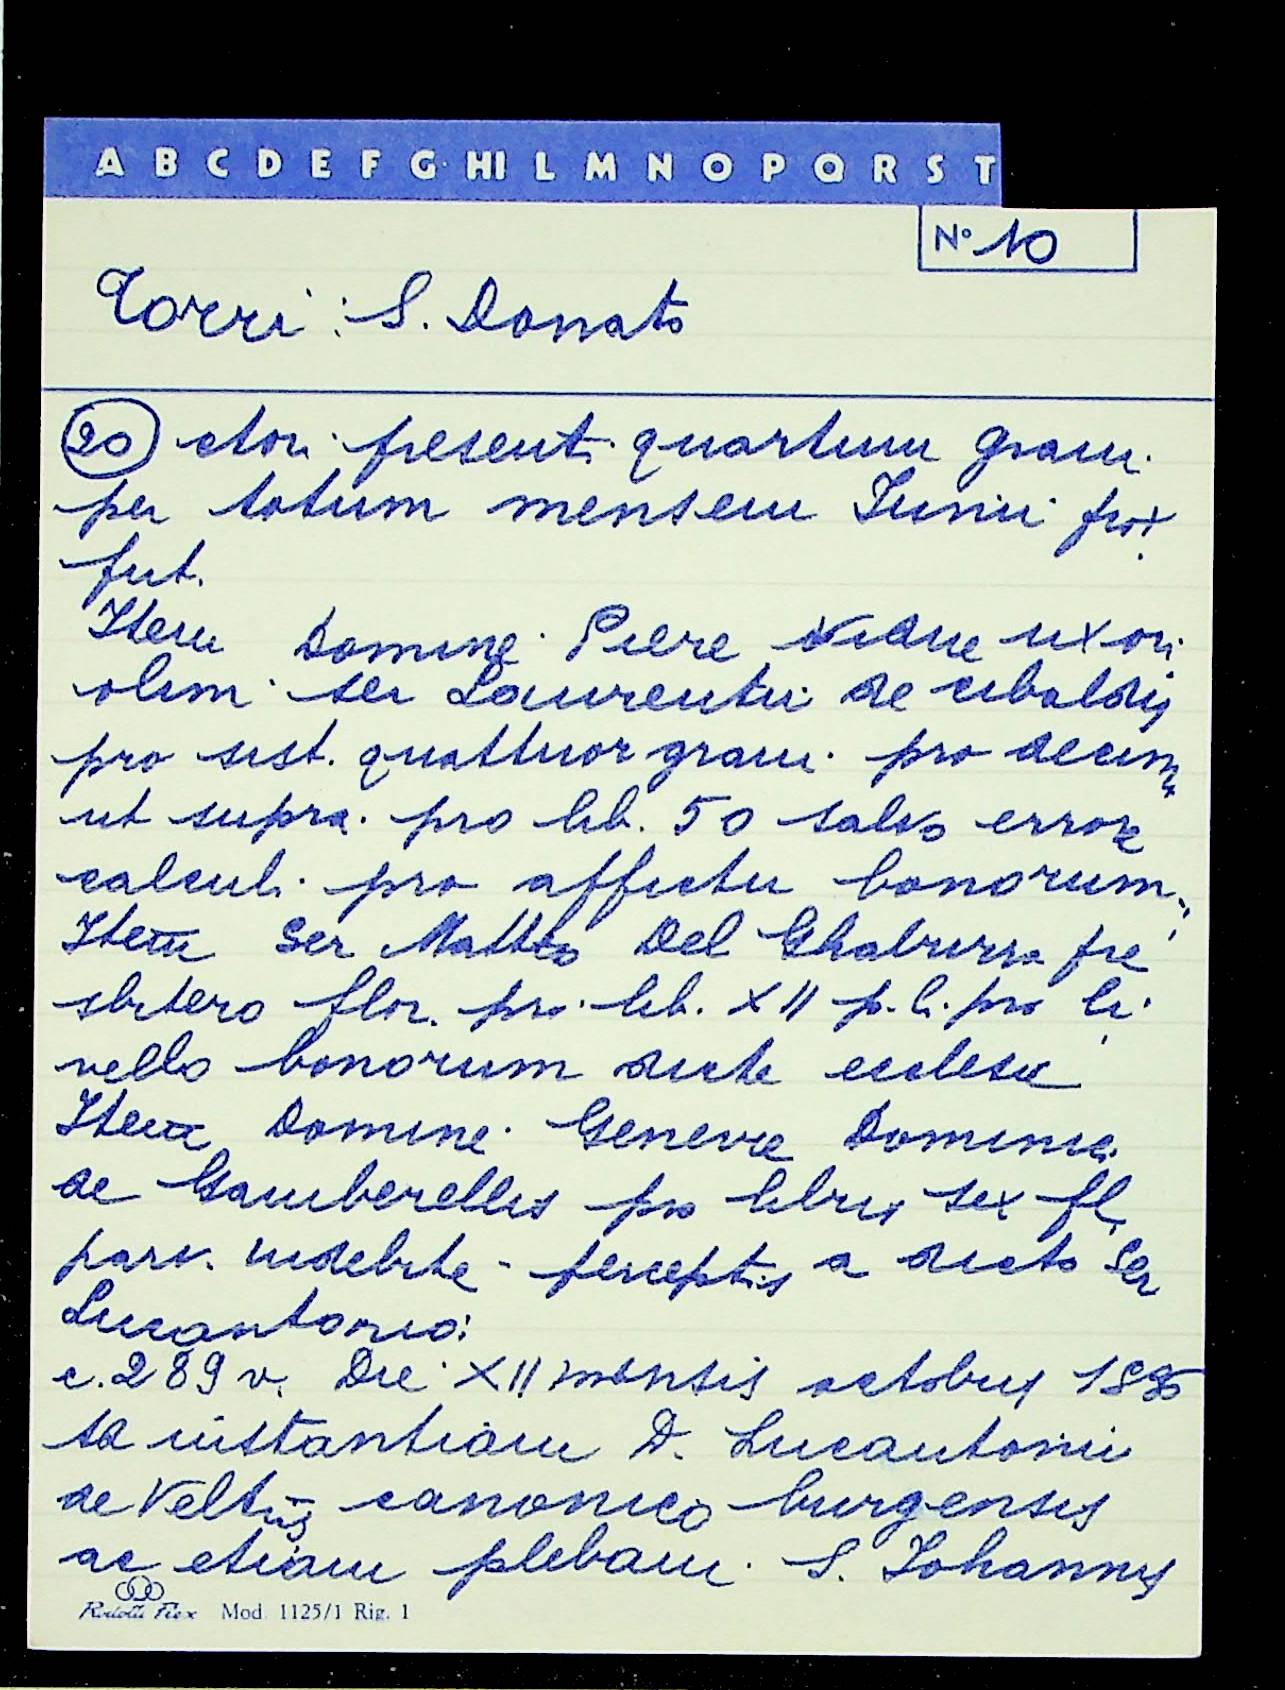 A B C D E F G HI L M N O P Q R S T
N° 10
Torri: S. Donato
20 ctori presenti quartum gram.
per totum mensem Iunii prox.
fut.
Item Domine Piere vidue uxori
olim ser Laurentii de ubaldis
pro sist. quattuor gram. pro decim.
ut supra. pro lib. 50 salvo errore
calculi pro affictu bonorum.
Item Ser Matteo Del Ghaburra pre
sbitero flor. pro lib. XII p. l. pro li
vello bonorum dicte ecclesie
Item Domine Genevre Dominici
de Gamberellis pro libris sex fl.
parv. indebite perceptis a dicto Ser
Lucantonio:
c. 289 v. Die XII mensis octobris
ta instantiam D. Lucantonii
de Veltiis canonico burgensis
ac etiam plebani S. Iohannis
Mod. 1125/1 Rig. 1